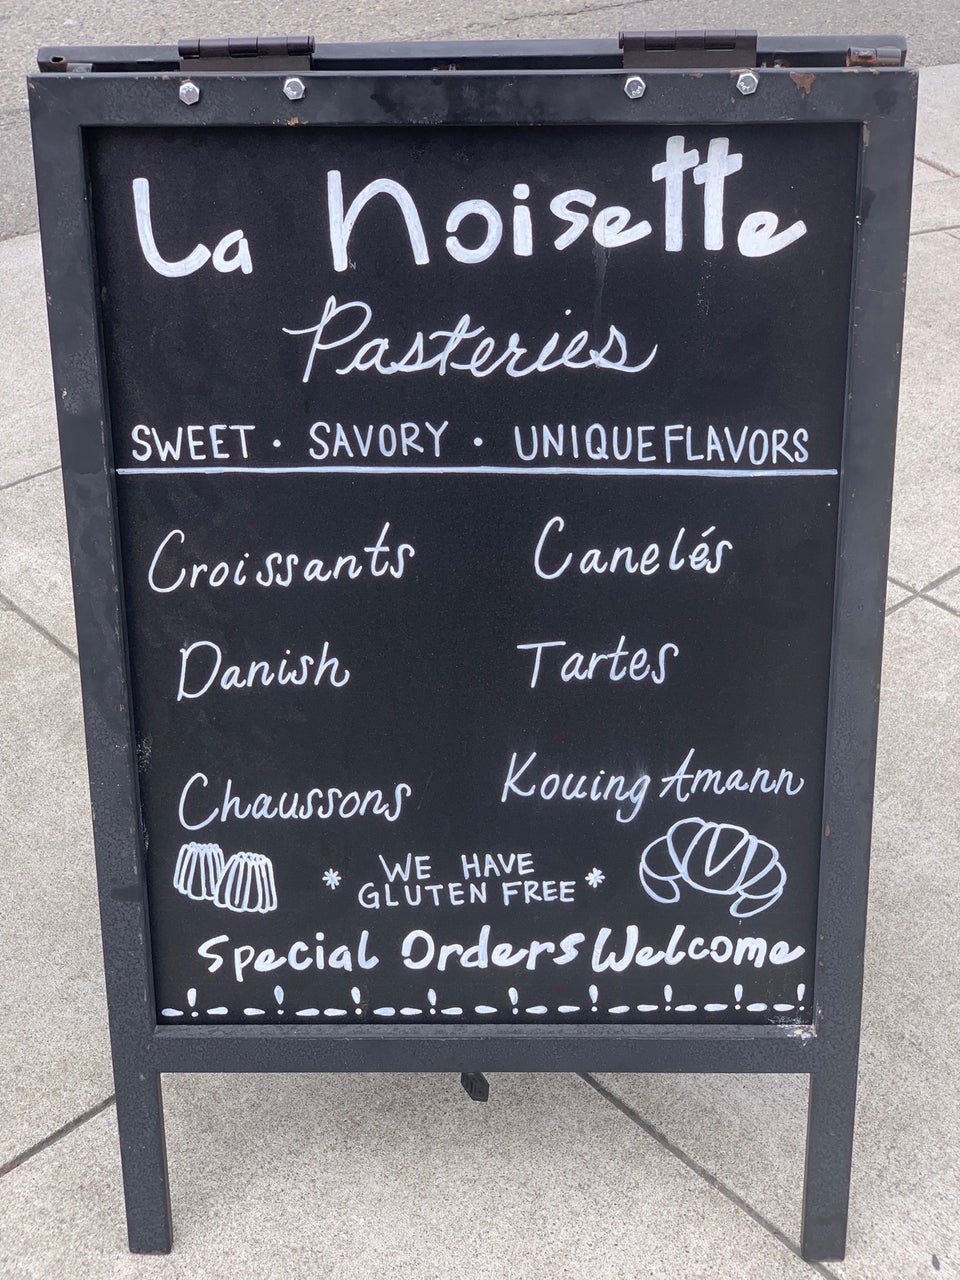 La Noisette
Pasteries
SWEET · SAVORY · UNIQUE FLAVORS
Croissants Canelés
Danish Tartes
Chaussons Kouing Amann
* WE HAVE
GLUTEN FREE *
Special Orders Welcome